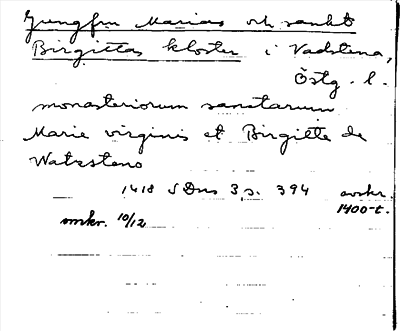 Jungfru Marias och sankt
Birgittas kloster i Vadstena,
Östg. l.
monasteriorum sanctarum
Marie virginis et Birgitte de
Watzsteno
1418 SDns 3 s. 394 avskr.
1400-t.
omkr. 10/12